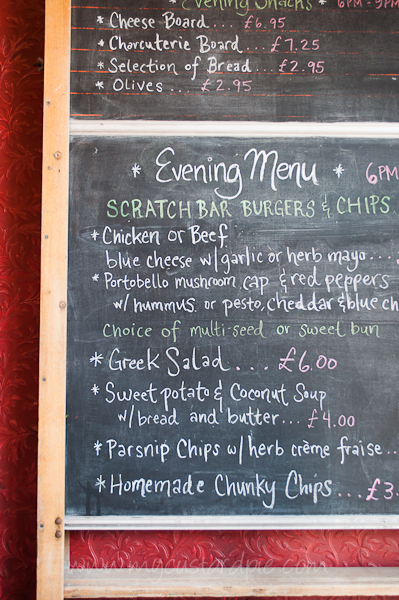 * Evening Snacks * 6PM - 9PM
* Cheese Board.... £6.95
* Charcuterie Board... £7.25
* Selection of Bread... £2.95
* Olives... £2.95
* Evening Menu * 6PM
SCRATCH BAR BURGERS & CHIPS
* Chicken or Beef
blue cheese w/garlic or herb mayo....
* Portobello mushroom cap & red peppers
w/ hummus or pesto, cheddar & blue ch
Choice of multi-seed or sweet bun
* Greek Salad... £6.00
* Sweet potato & Coconut Soup
w/bread and butter... £4.00
* Parsnip Chips w/ herb crème fraise...
* Homemade Chunky Chips... £3.
www.mycustardpie.com